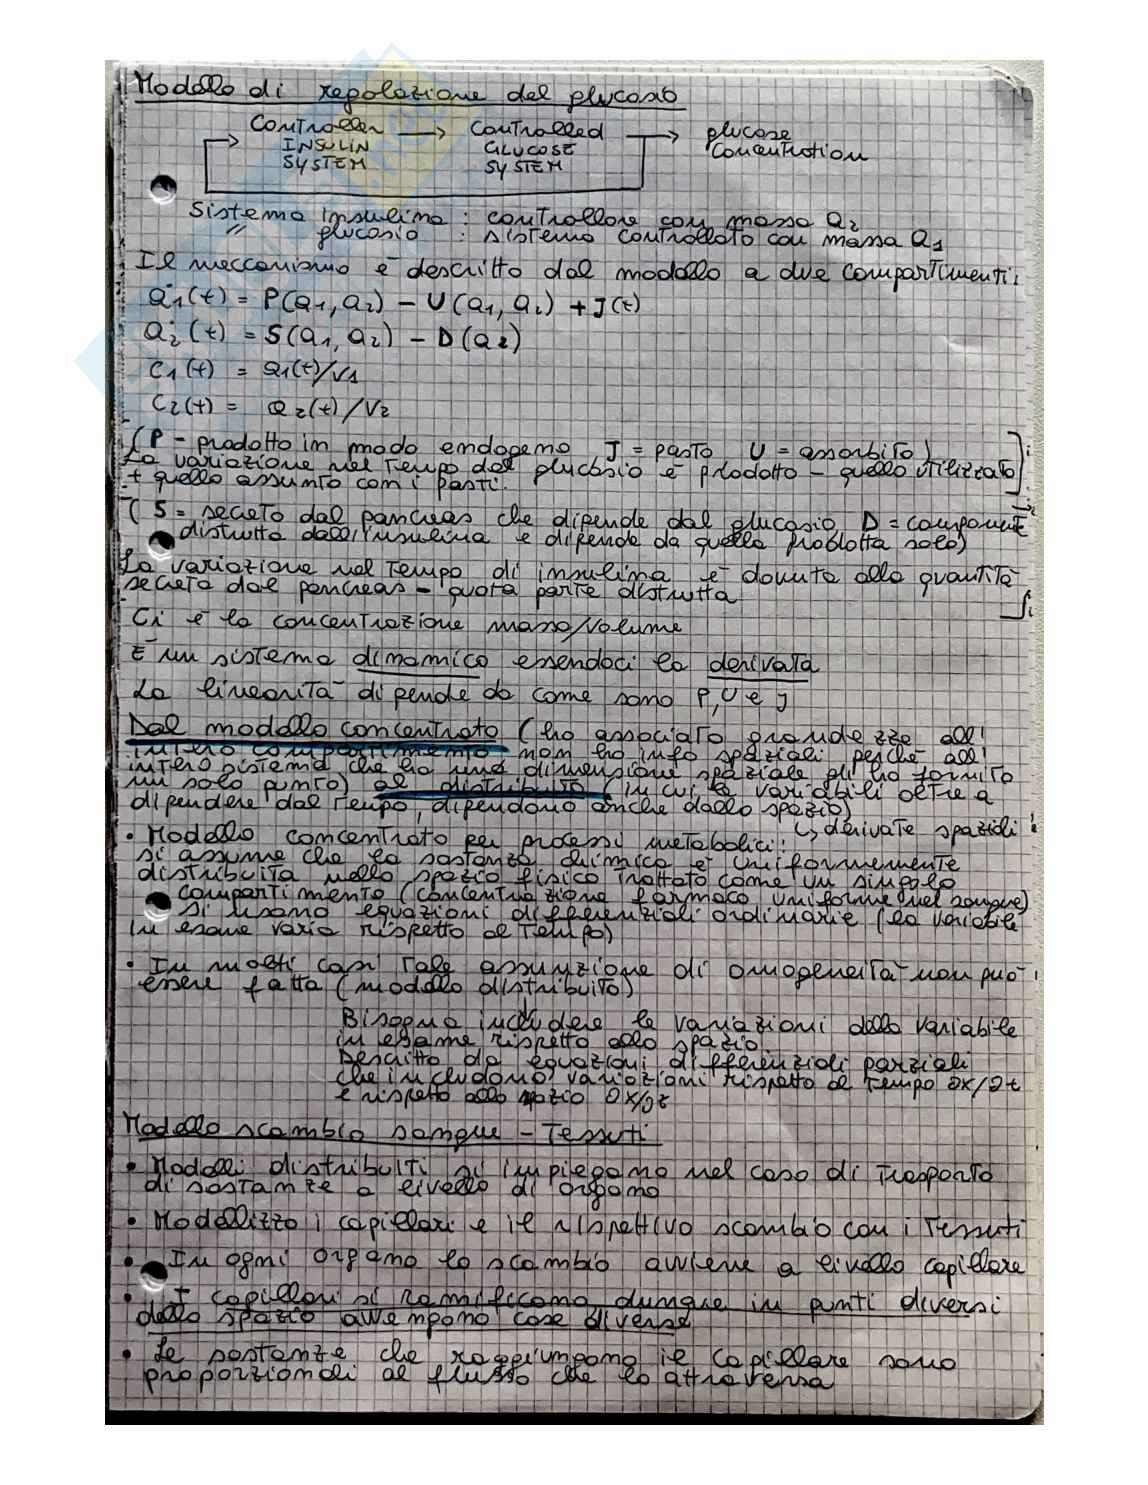 Modello di regolazione del glucosio
CONTROLLER → CONTROLLED → glucose
INSULIN GLUCOSE concentration
SYSTEM SYSTEM
Sistema insulina : controllore con massa Q2
" glucosio : sistema controllato con massa Q1
Il meccanismo è descritto dal modello a due compartimenti:
Q̇1(t) = P(Q1, Q2) − U(Q1, Q2) + J(t)
Q̇2(t) = S(Q1, Q2) − D(Q2)
C1(t) = Q1(t)/V1
C2(t) = Q2(t)/V2
(P - prodotto in modo endogeno J = pasto U = assorbito)
La variazione nel tempo del glucosio è prodotto − quello utilizzato
+ quello assunto con i pasti.
(S = secreto dal pancreas che dipende dal glucosio D = componente
distrutta dall'insulina e dipende da quella prodotta solo)
La variazione nel tempo di insulina è dovuta alla quantità
secreta dal pancreas − quota parte distrutta
Ci è la concentrazione massa/volume
È un sistema dinamico essendoci la derivata
La linearità dipende da come sono P, U e J
Dal modello concentrato (ho associato grandezze all'
intero compartimento non ho info spaziali perché all'
intero sistema che ha una dimensione spaziale gli ho fornito
un solo punto) al distribuito (in cui le variabili oltre a
dipendere dal tempo, dipendono anche dallo spazio)
↳ derivate spaziali
• Modello concentrato per processi metabolici:
si assume che la sostanza chimica è uniformemente
distribuita nello spazio fisico trattato come un singolo
compartimento (concentrazione farmaco uniforme nel sangue)
Si usano equazioni differenziali ordinarie (la variabile
in esame varia rispetto al tempo)
• In molti casi tale assunzione di omogeneità non può
essere fatta (modello distribuito)
Bisogna includere le variazioni della variabile
in esame rispetto allo spazio.
Descritto da equazioni differenziali parziali
che includono variazioni rispetto al tempo ∂x/∂t
e rispetto allo spazio ∂x/∂z
Modello scambio sangue - Tessuti
• Modelli distribuiti si impiegano nel caso di trasporto
di sostanze a livello di organo
• Modellizzo i capillari e il rispettivo scambio con i tessuti
• In ogni organo lo scambio avviene a livello capillare
• I capillari si ramificano dunque in punti diversi
dello spazio avvengono cose diverse
• Le sostanze che raggiungono il capillare sono
proporzionali al flusso che lo attraversa